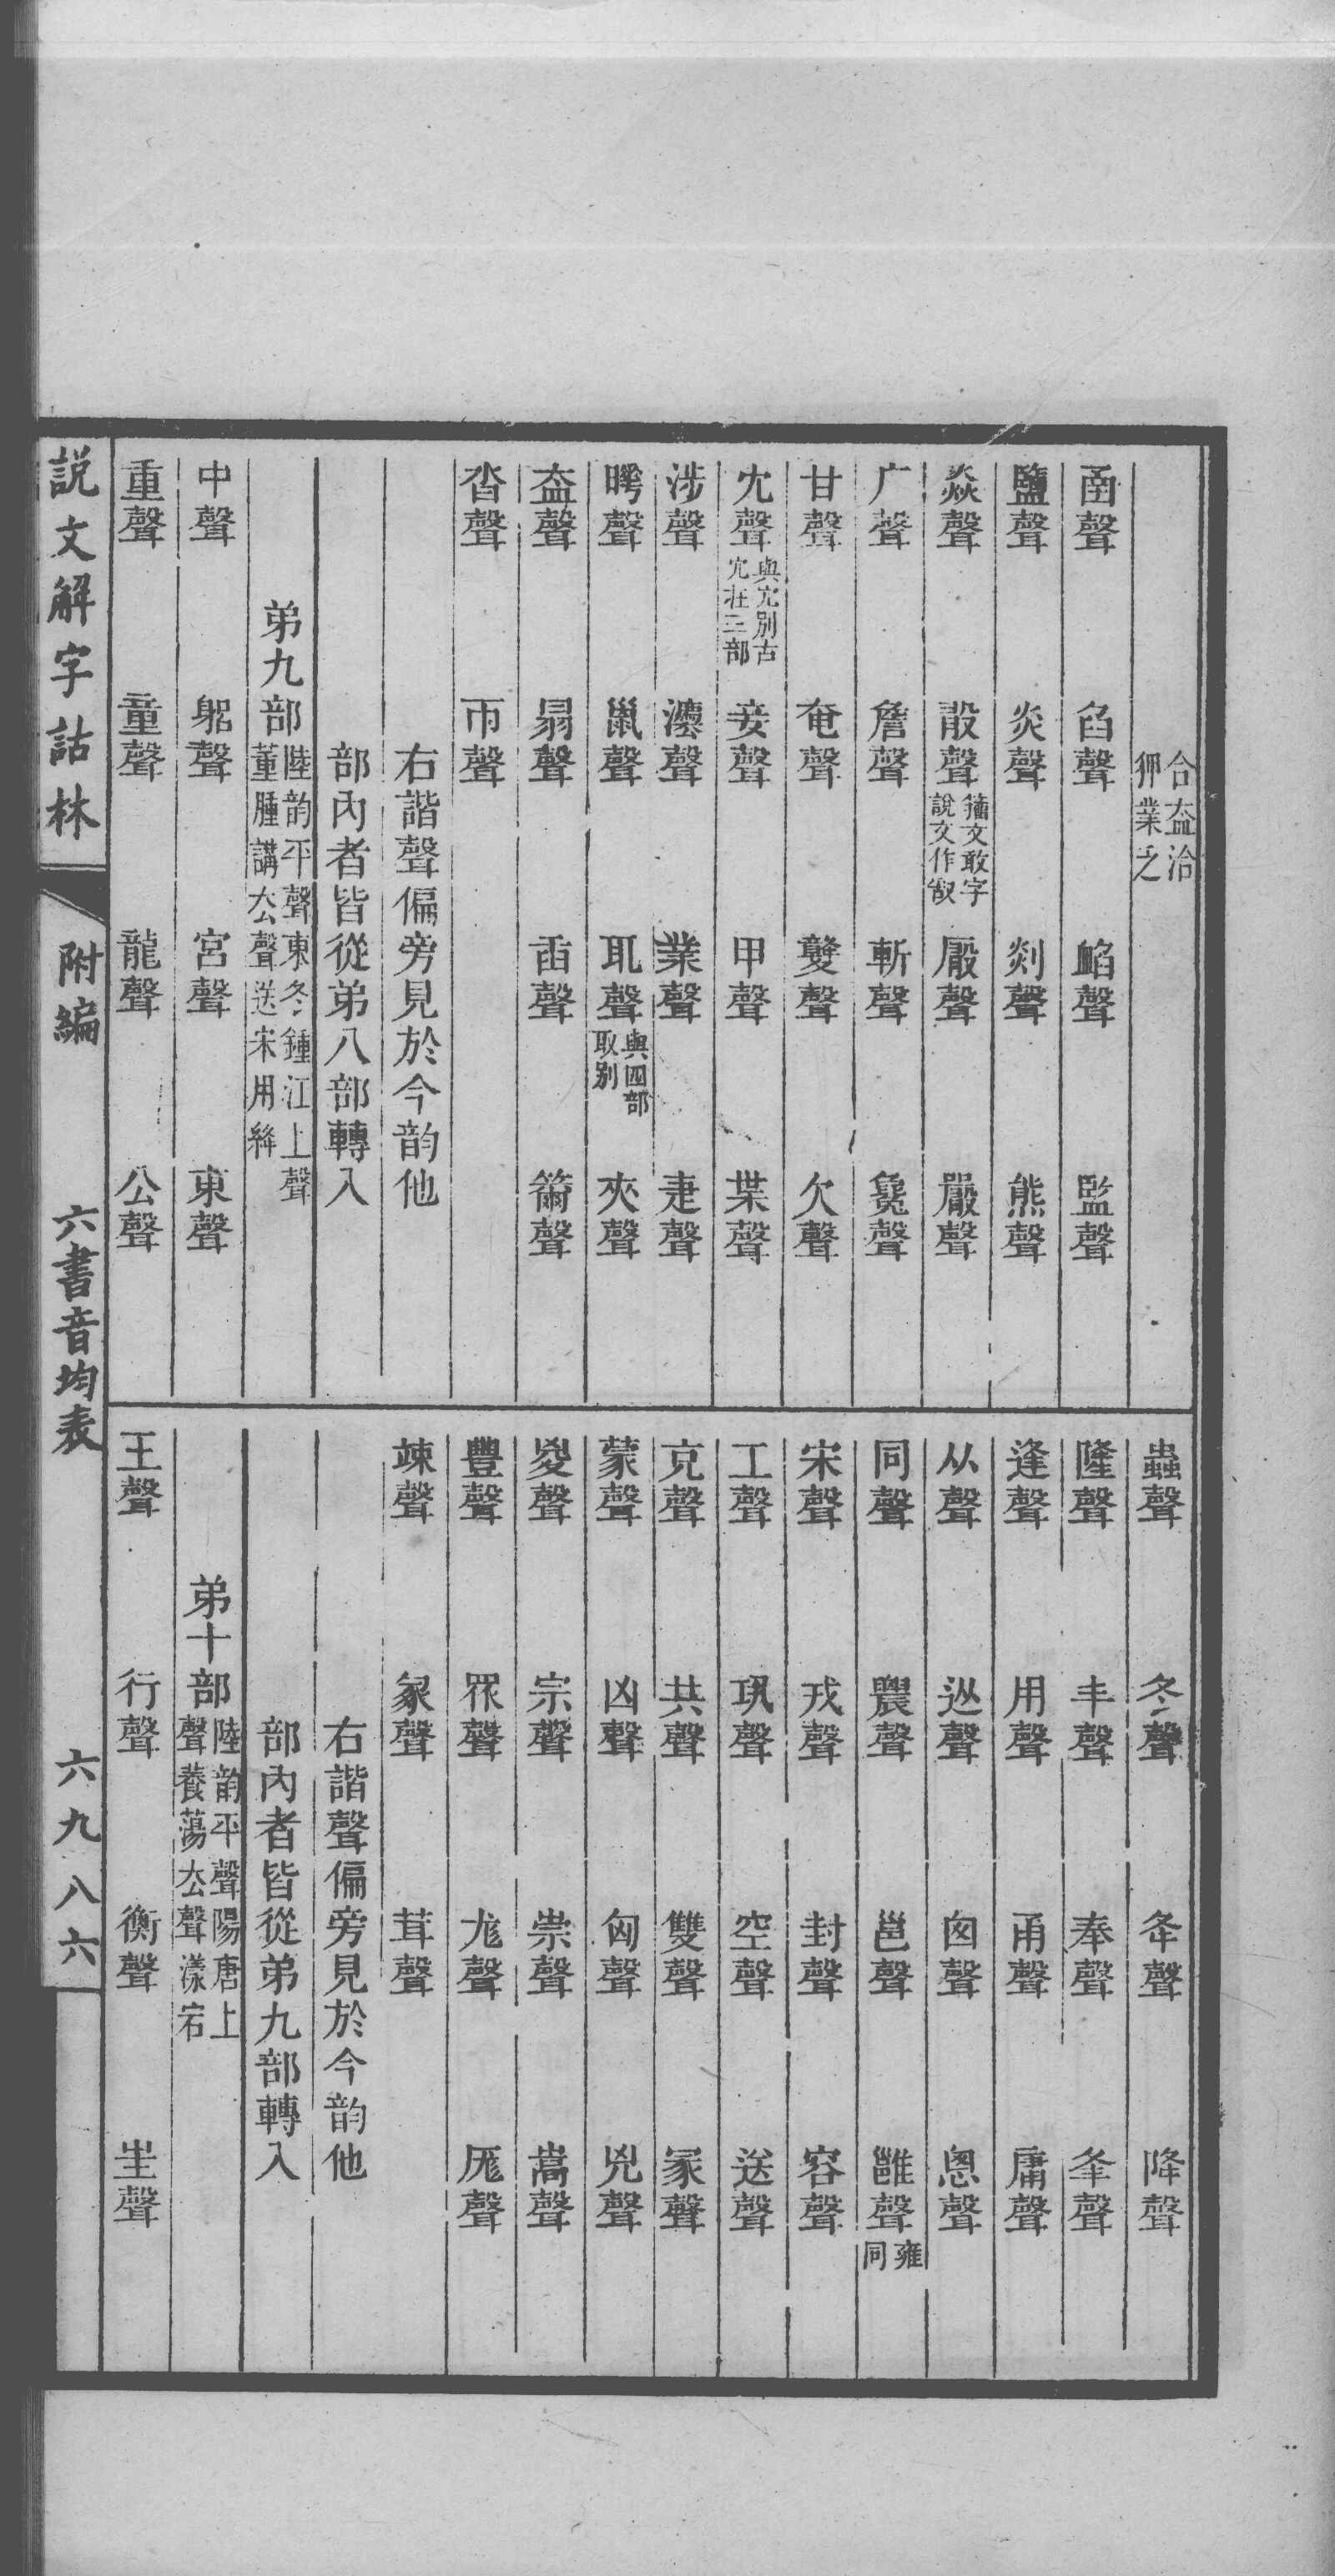 合盇洽
狎業乏
臽聲 䧟聲 監聲
鹽聲 炎聲 剡聲 熊聲
焱聲 㪉聲籒文敢字
說文作𠭖 厰聲 嚴聲
广聲 詹聲 斬聲 毚聲
甘聲 奄聲 欠聲
冘聲與冘別古
冘在三部 妾聲 甲聲 枼聲
涉聲 瀍聲 業聲 疌聲
曄聲 巤聲 耴聲與四部
取別 夾聲
盇聲 弱聲 臿聲 籋聲
沓聲 帀聲
右諧聲偏旁見於今韵他
部內者皆從弟八部轉入
弟九部陸韵平聲東冬鍾江上聲
董腫講厺聲送宋用絳
中聲 躳聲 宮聲 東聲
重聲 童聲 龍聲 公聲
蟲聲 冬聲 夅聲 降聲
隆聲 丰聲 奉聲 夆聲
逢聲 用聲 甬聲 庸聲
从聲 䢨聲 囪聲 悤聲
同聲 農聲 邕聲 雝聲雍
同
宋聲 戎聲 封聲 容聲
工聲 巩聲 空聲 送聲
克聲 共聲 雙聲 冡聲
蒙聲 凶聲 匈聲 兇聲
㚇聲 宗聲 崇聲 嵩聲
豐聲 眾聲 尨聲 厖聲
竦聲 豖聲 茸聲
右諧聲偏旁見於今韵他
部內者皆從弟九部轉入
弟十部陸韵平聲陽唐上
聲養蕩厺聲漾宕
王聲 行聲 衡聲 㞷聲
說文解字詁林
附編
六書音均表
六九八六